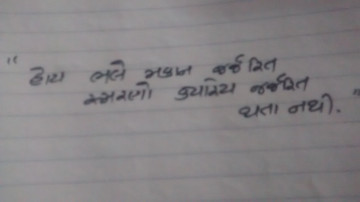 "હોય ભલે મકાન જર્જરિત
સ્મરણો ક્યારેય જર્જરિત
થતા નથી."